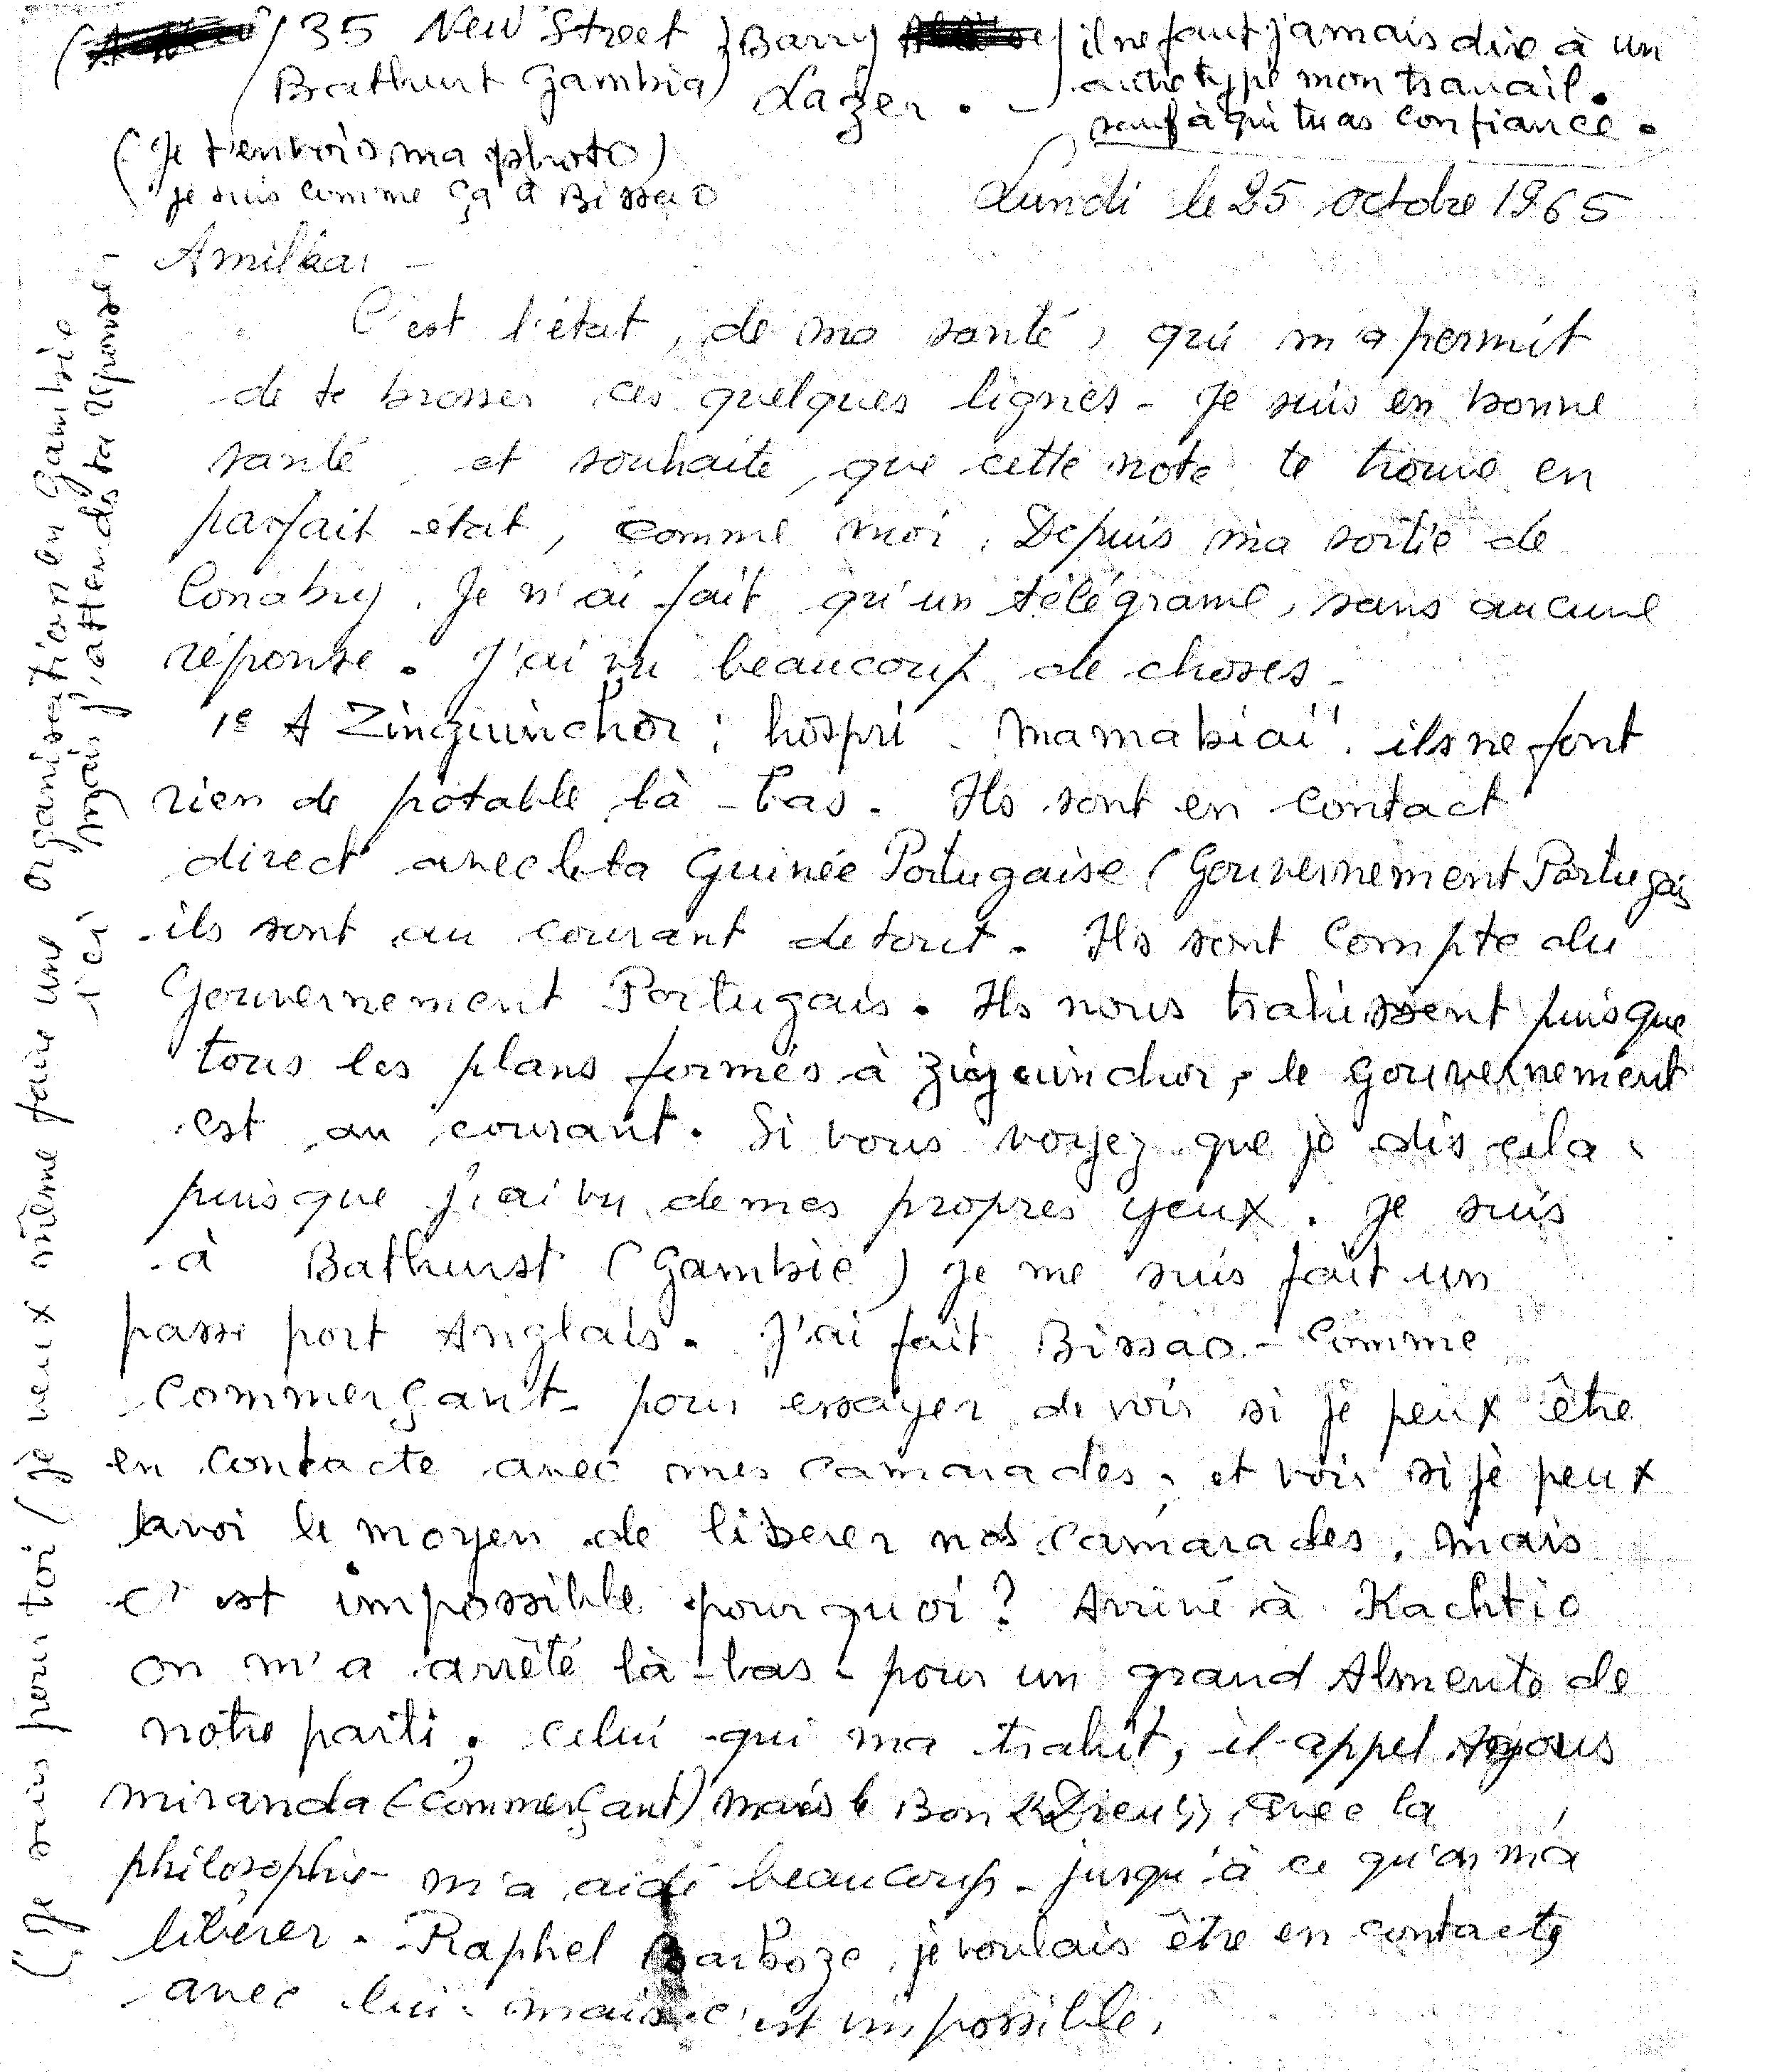 35 New Street } Barry
Bathurt Gambia) Lazer . -
il ne faut jamais dire à un
autre type mon travail.
sauf à qui tu as confiance.
(Je t'envois ma photo)
je suis comme ça à Bissao
Lundi le 25 octobre 1965
Amilkar -
C'est l'état, de ma santé, qui m'a permit
de te brosser ces quelques lignes - Je suis en bonne
santé, et souhaite, que cette note te trouve en
parfait état, comme moi. Depuis ma sortie de
Conakry. Je n'ai fait qu'un télégrame, sans aucune
réponse. J'ai vu beaucoup de choses -
1e A Zinguinchor : hospri - Mamabiai. ils ne font
rien de potable là-bas. Ils sont en contact
direct avec la Guinée Portugaise (Gouvernement Portugais
ils sont au courant de tout. Ils sont Compte du
Gouvernement Portugais. Ils nous trahissent puisque
tous les plans formés à Ziguinchor, le gouvernement
est au courant. Si vous voyez que je dis cela,
puisque j'ai vu de mes propres yeux. Je suis
à Bathurst (Gambie) je me suis fait un
passe port Anglais. J'ai fait Bissao - Comme
Commerçant - pour essayer de voir si je peux être
en contacte avec mes camarades, et voir si je peux
avoi le moyen de liberer nos camarades. Mais
c'est impossible pourquoi ? Arrivé à Kachtio
on m'a arrêté là-bas - pour un grand Almento de
notre parti. Celui qui ma trahit, il appel
miranda (Commerçant) mais le Bon Dieu, avec la
philosophie m'a aidé beaucoup - jusqu'à ce qu'on m'a
libérer. - Raphel Barboze, je voulais être en contacte
avec lui - mais c'est impossible.
(Je suis pour toi / je veux même faire une organisation en Gambie
ici mais j'attends ta réponse -